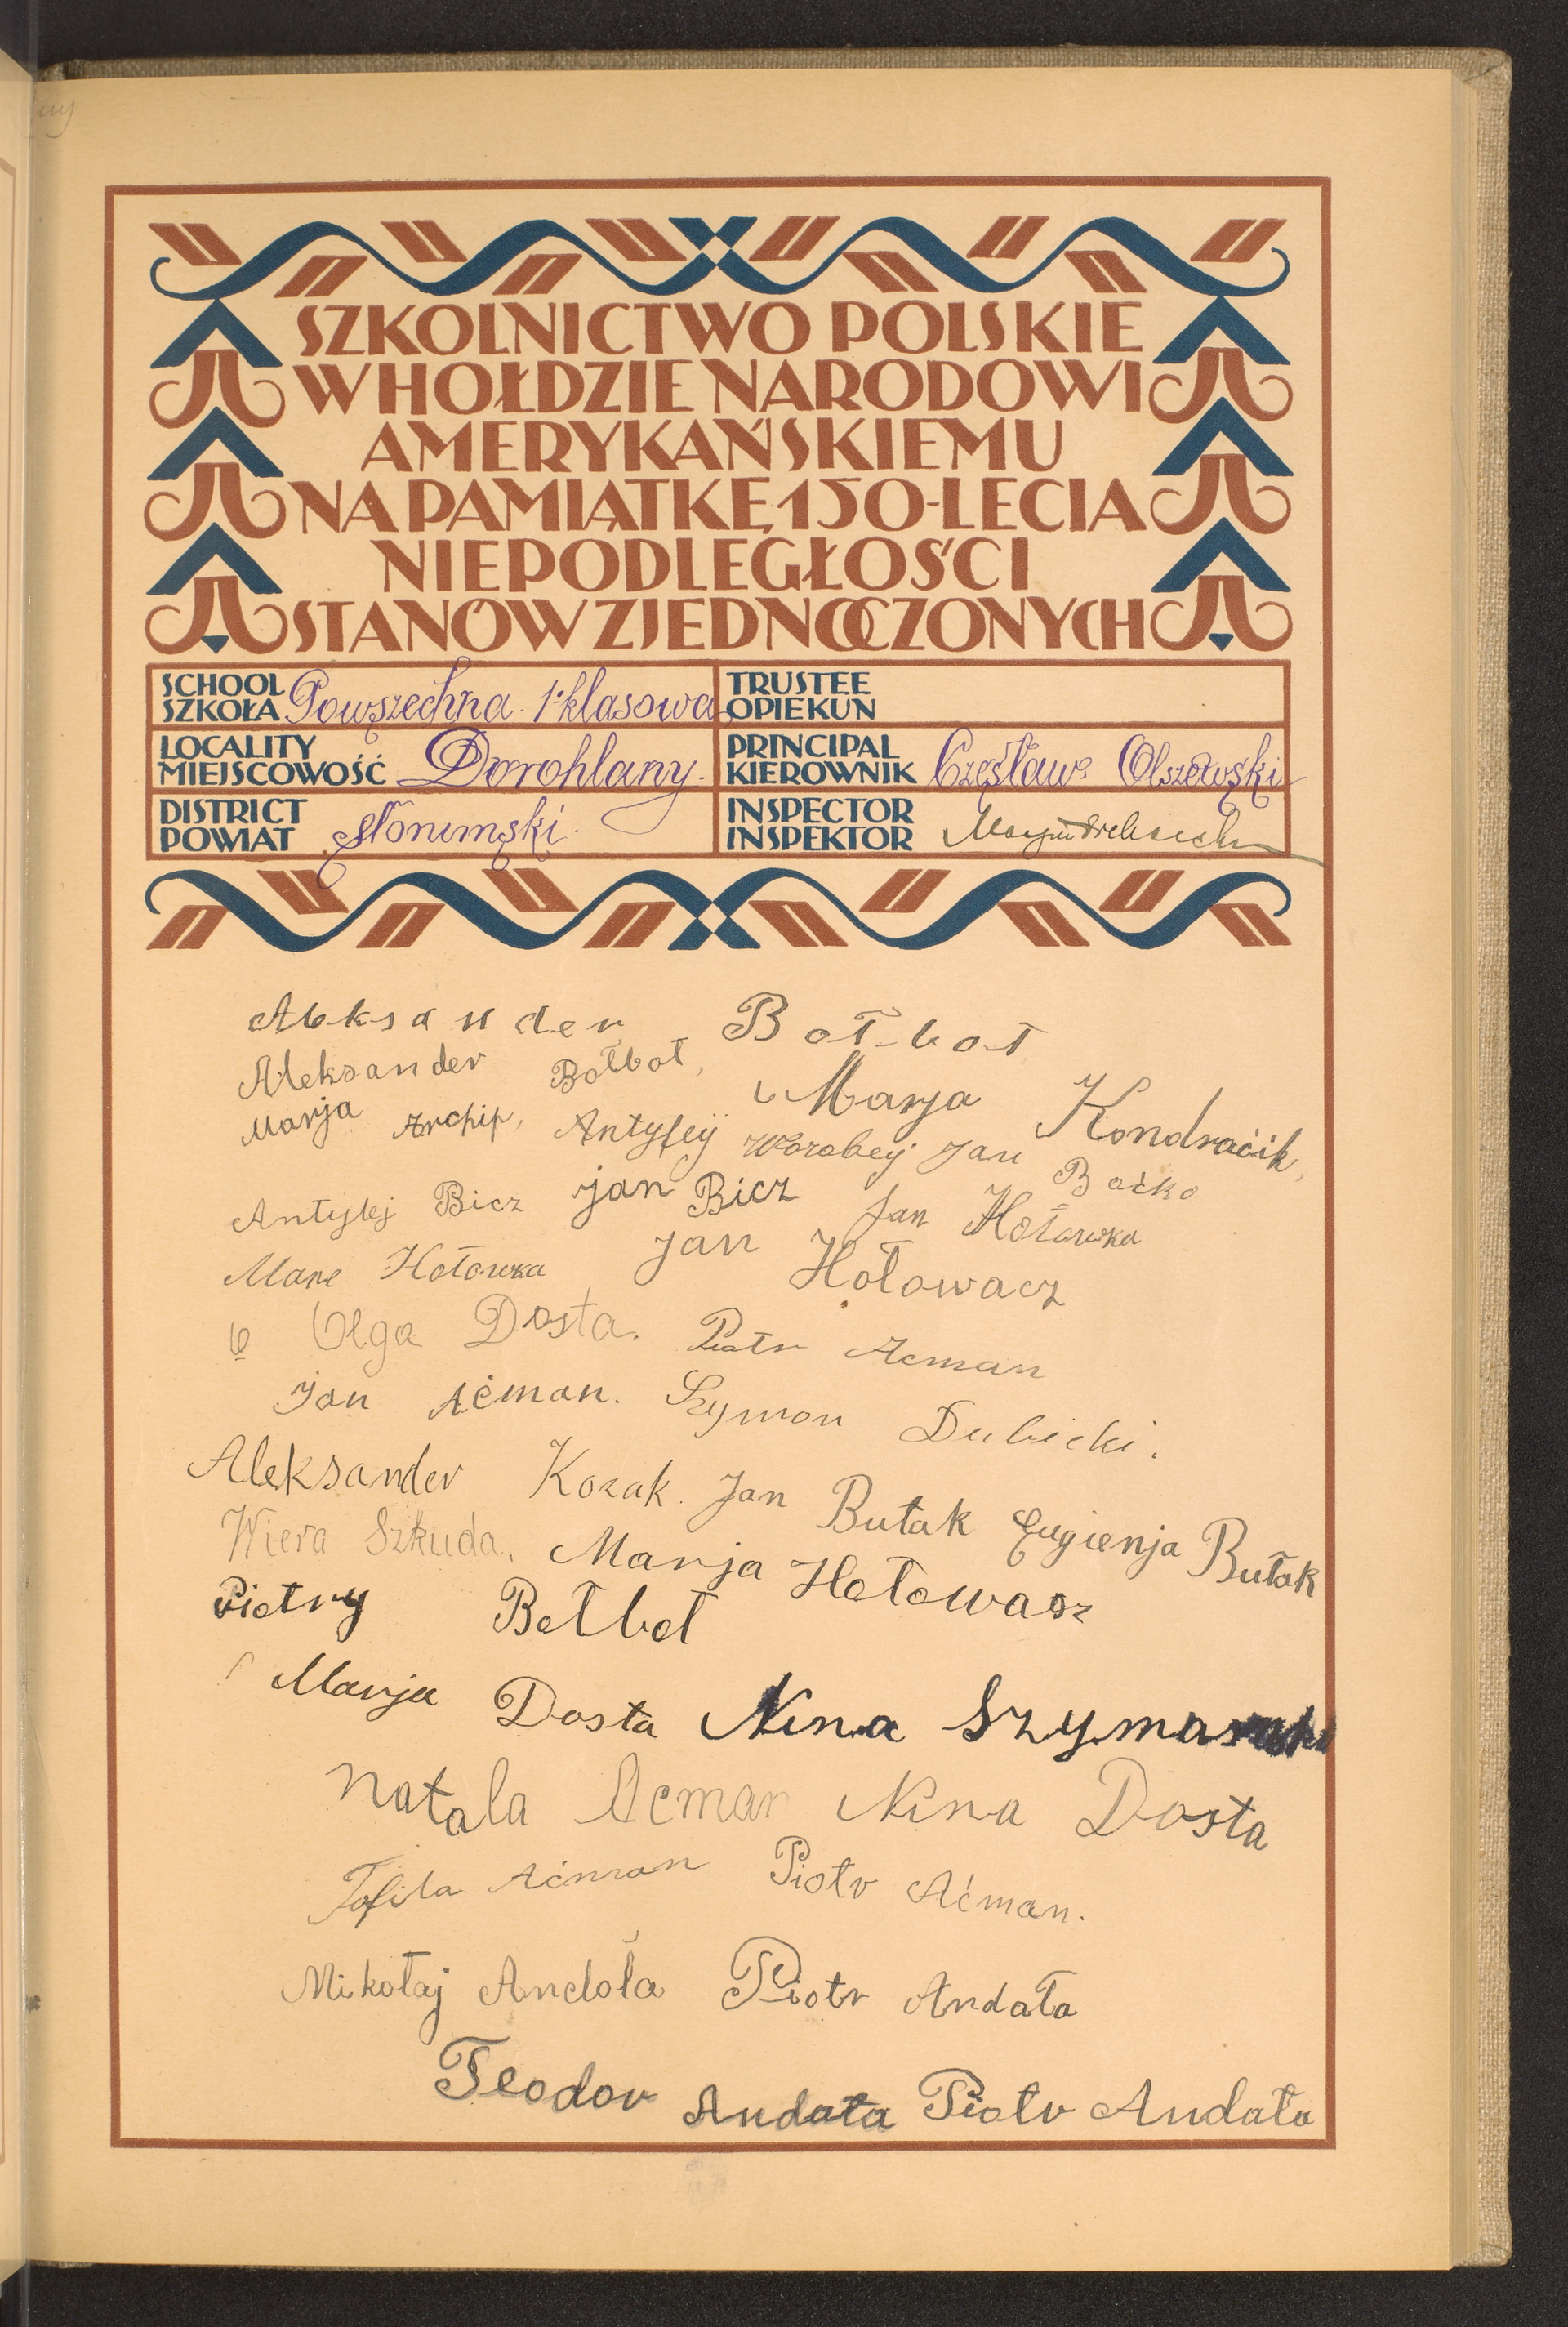 SZKOLNICTWO POLSKIE
W HOŁDZIE NARODOWI
AMERYKAŃSKIEMU
NA PAMIĄTKĘ 150-LECIA
NIEPODLEGŁOŚCI
STANÓW ZJEDNOCZONYCH
SCHOOL SZKOŁA Powszechna 1-klasowa
TRUSTEE OPIEKUN
LOCALITY MIEJSCOWOŚĆ Dorohlany.
PRINCIPAL KIEROWNIK Czesław Olszewski
DISTRICT POWIAT Słonimski.
INSPECTOR INSPEKTOR
Aleksander Bołbot
Aleksander Bołbot,
Marja Kondracik,
Marja Archip, Antyfej Worobej Jan Boćko
Antyfej Bicz Jan Bicz Jan Hołowka
Mare Hołowka Jan Hołowacz
Olga Dosta. Piotr Acman
Jan Aćman. Szymon Dubicki.
Aleksander Kozak. Jan Butak Eugienja Butak
Wiera Szkuda. Marja Hołowasz
Piotry Bołbot
Marja Dosta Nina
Natala Acman Nina Dosta
Tofila Aćman Piotr Aćman.
Mikołaj Andoła Piotr Andała
Teodor Andała Piotr Andała